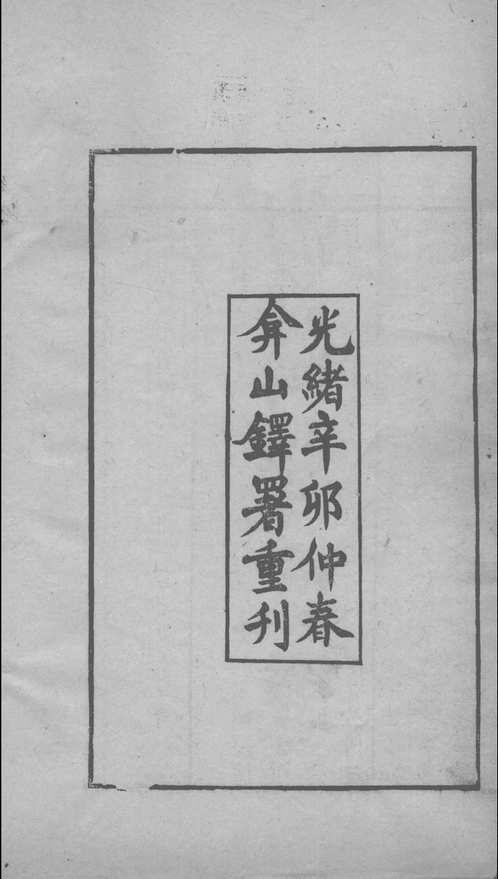 光緒辛卯仲春
弇山鐸署重刋